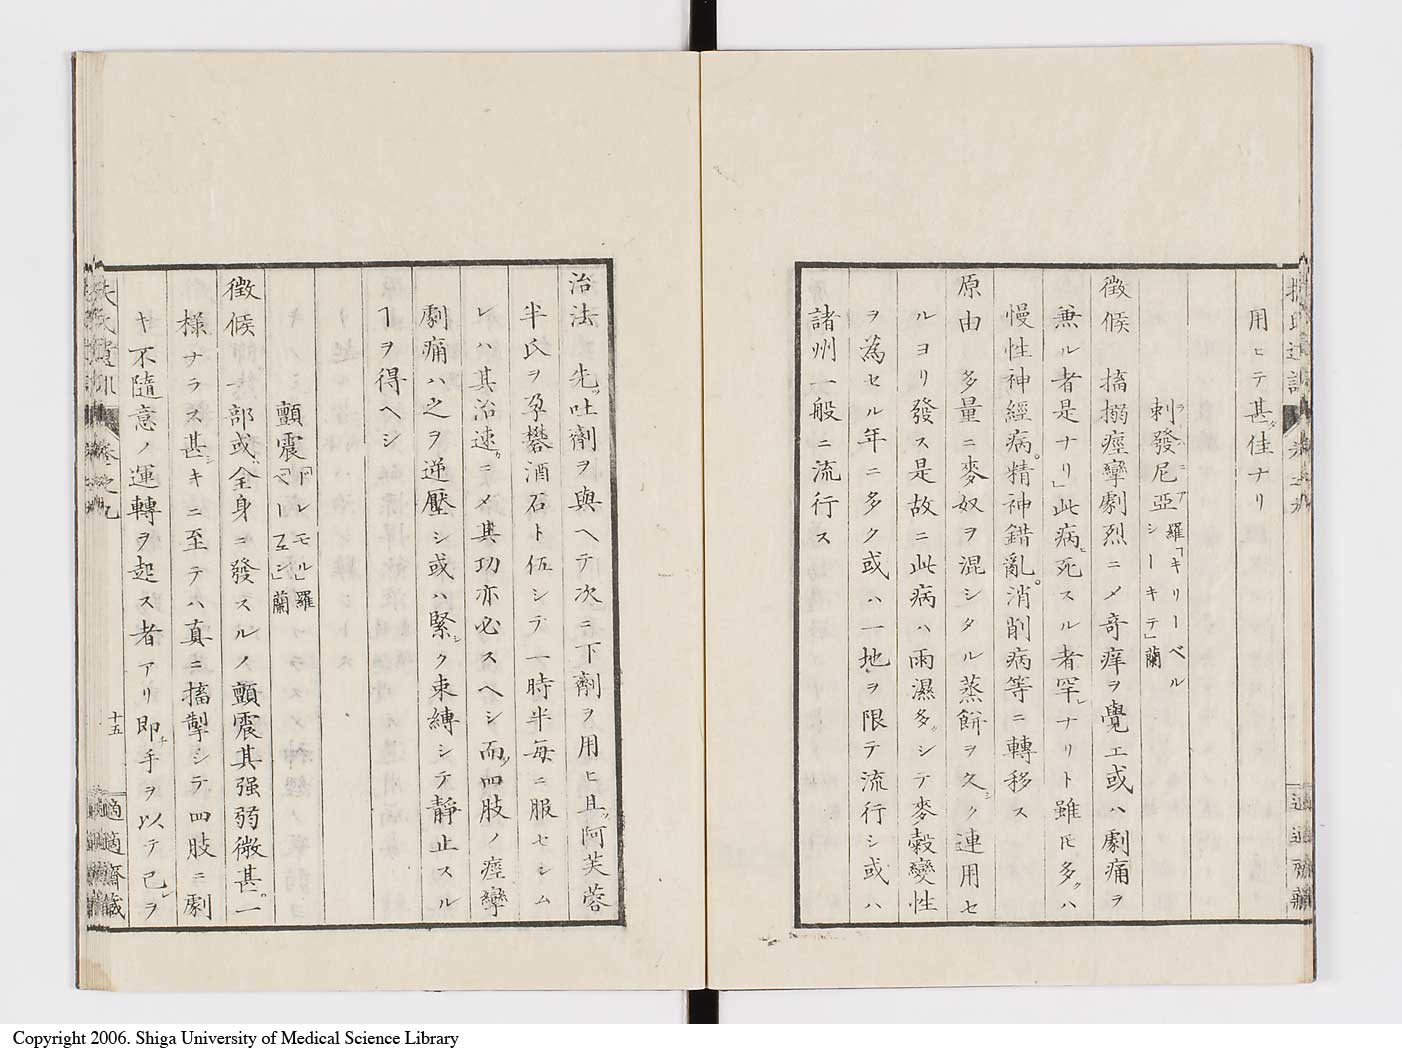 用ヒテ甚タ佳ナリ
刺發尼亞 羅「キリーベル シーキテ」蘭
ラニア
徴候 搐搦痙攣劇烈ニメ奇痒ヲ覺エ或ハ劇痛ヲ
兼ル者是ナリ」此病ニ死スル者罕レナリト雖𪜈多クハ
慢性神經病。精神錯亂。消削病等ニ轉移ス
原由 多量ニ麥奴ヲ混シタル蒸餅ヲ久シク連用セ
ルヨリ發ス是故ニ此病ハ雨濕多クシテ麥穀變性
ヲ為セル年ニ多ク或ハ一地ヲ限テ流行シ或ハ
諸州一般ニ流行ス
適適齋藏
治法 先ツ吐劑ヲ與ヘテ次ニ下劑ヲ用ヒ且ツ阿芙蓉
半氏ヲ孕礬酒石ト伍シテ一時半每ニ服セシム
レハ其治速カニメ其功亦必スヘシ而ツ四肢ノ痙攣
劇痛ハ之ヲ逆壓シ或ハ緊シク束縛シテ靜止スル
ヿヲ得ヘシ
顫震 「トレモル」羅 「ベーフェン」蘭
徴候 一部或ハ全身ニ發スルノ顫震其强弱微甚一
樣ナラス甚シキニ至テハ真ニ搐掣シテ四肢ニ劇
キ不隨意ノ運轉ヲ起ス者アリ即チ手ヲ以テ己レヲ
扶氏經驗 卷之九
十五
適適齋藏
Copyright 2006. Shiga University of Medical Science Library